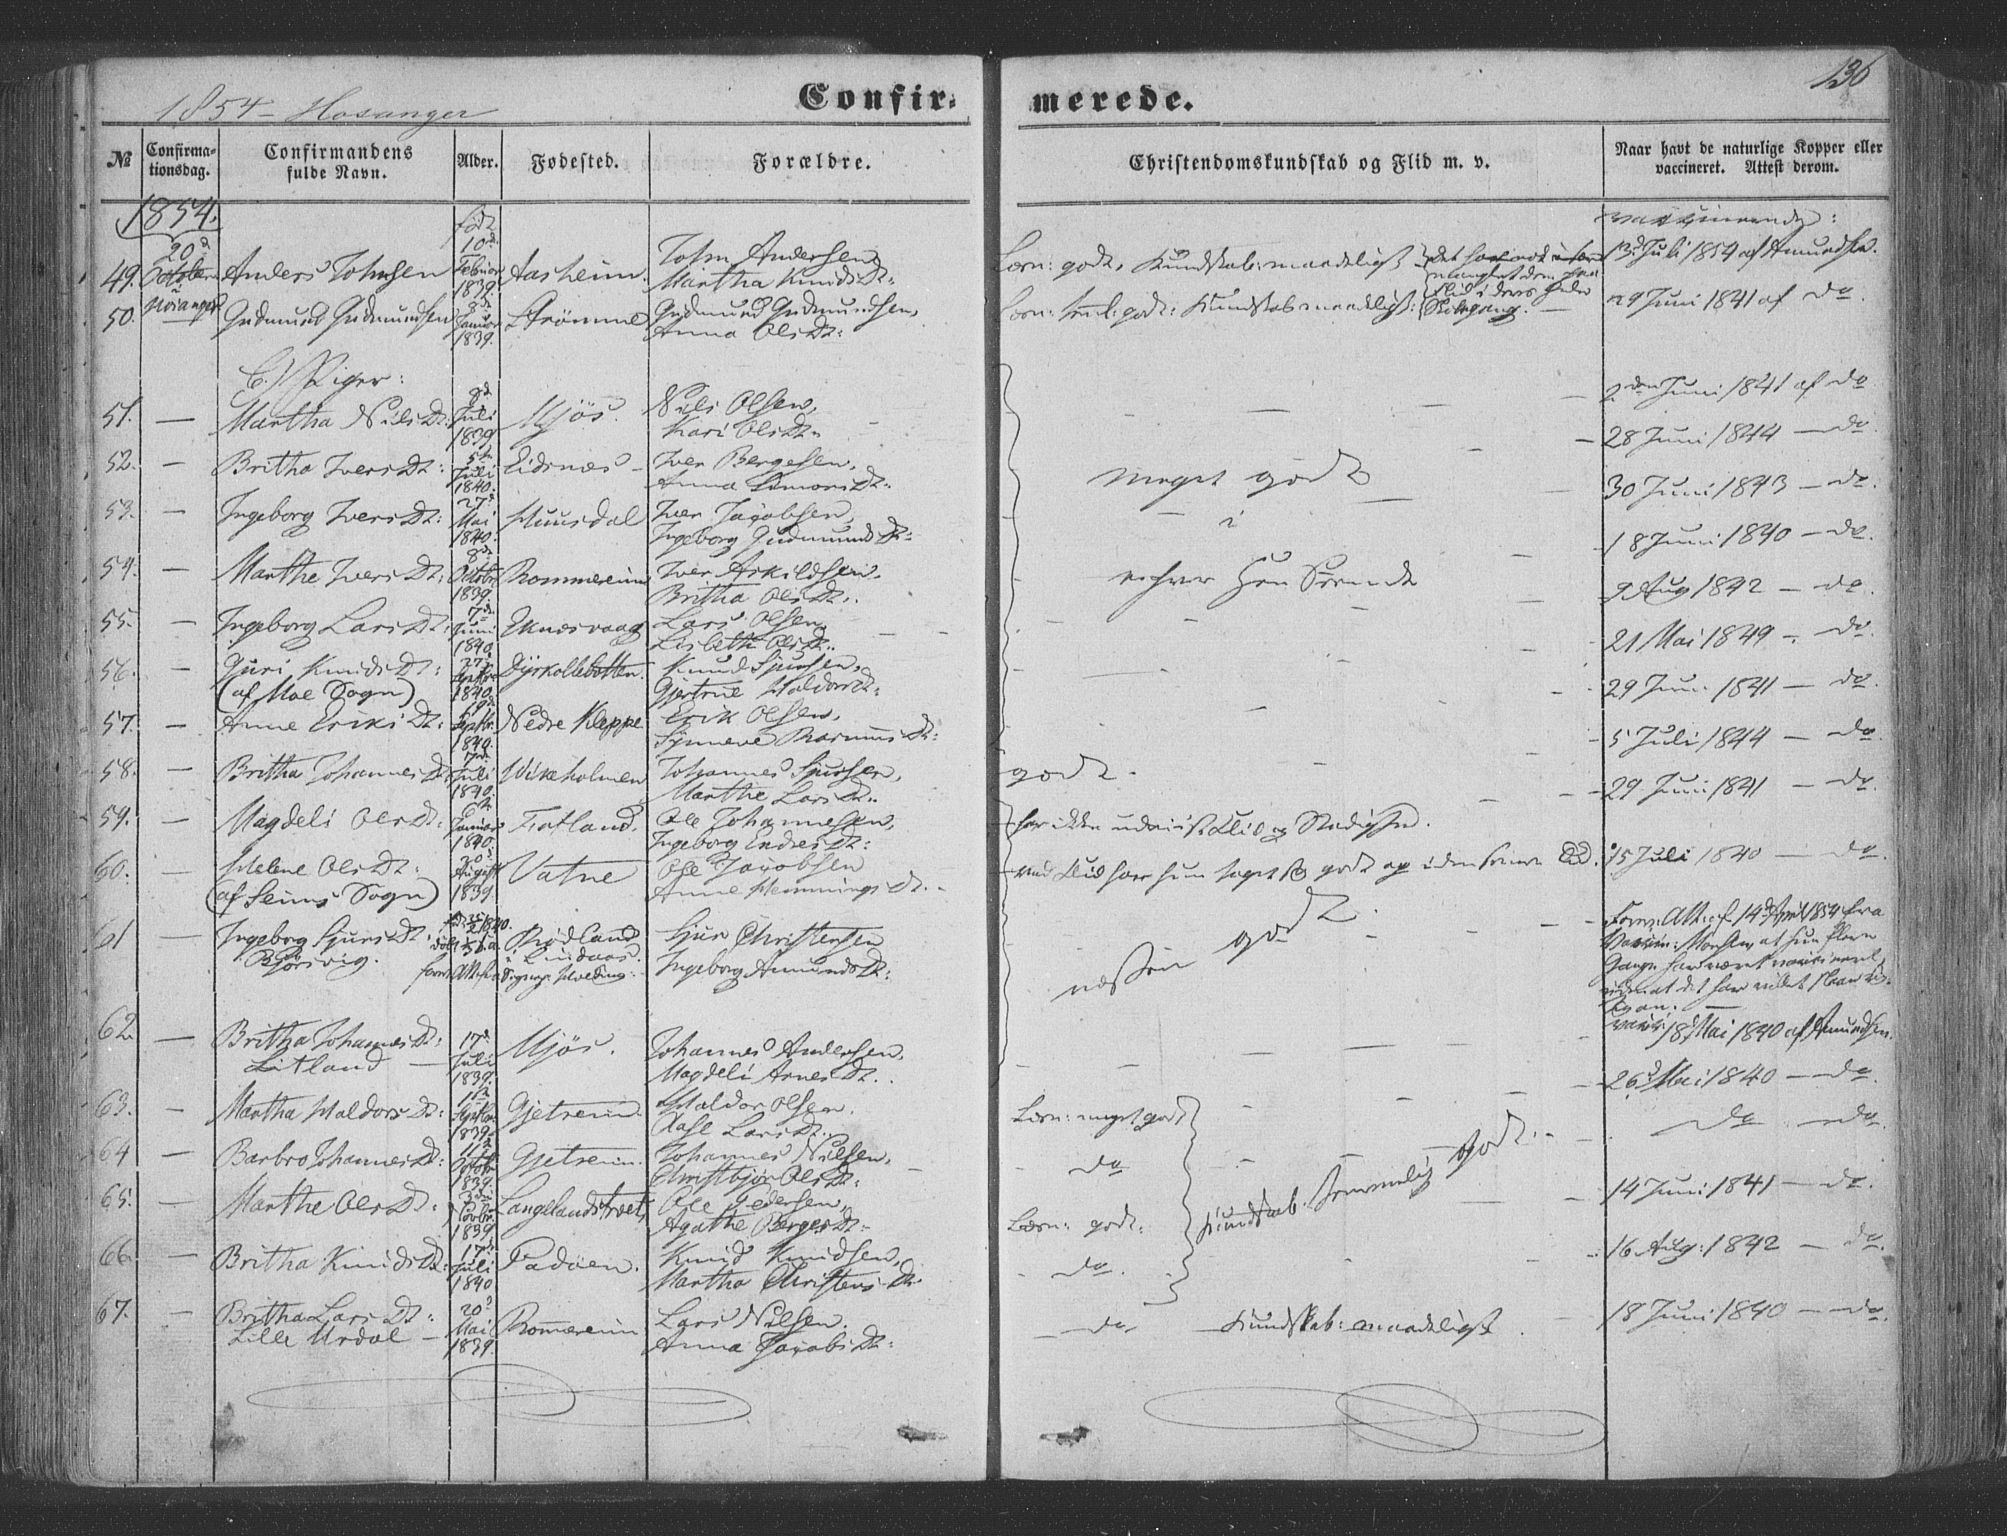 1854 - Hosanger
Confir-
merede.
136
№
Confirma-
tionsdag.
Confirmandens
fulde Navn.
Alder.
Fødested.
Forældre.
Christendomskundskab og Flid m. v.
Naar havt de naturlige Kopper eller
vaccineret. Attest derom.
1854.
født
49. 20d October Hosanger Anders Johnsen 10d Februar 1839 Aasheim. John Andersen Martha KnudsDt: Læsn: godt, Kundskab: maadeligt 13d Juli 1854 af Amundsen.
50. Gudmund Gudmundsen 8d Januar 1839. Strömme Gudmund Gudmundsen, Anna OlsDt: Læsn: godt: Kundskab maadeligt: Skolegang. — 29 Juni 1841 af do.
Piger:
51. — Martha NilsDt: 8d Juli 1839 Mjös. Nils Olsen, Kari OlsDt. 2den Juni 1841 af do
52. — Britha IversDt: 5te Juli 1840. Eidsnæs — Iver Bergesen, Anna SimonsDt. meget godt 28 Juni 1844 — do.
53. — Ingeborg IversDt: 27d Mai 1840. Huusdal Iver Jacobsen, Ingeborg GudmundsDt: 30 Juni 1843 — do.
54. — Marthe IversDt: 8de Octobr 1839. Rommereim Iver Askildsen. Britha OlsDt. 18 Juni 1840 — do.
55. — Ingeborg LarsDt: 7de Juni 1840. Eknæsvaag Lars Olsen, Lisbeth OlsDt. 9 Aug 1842 — do.
56. — Guri KnudsDt: (af Moe Sogn) 1840. Dyrkolbotten. Knud Sjursen, Gjertrue HaldorsDt: 21 Mai 1849 — do.
57. — Anne EriksDt: 19d Septbr. 1840. Nedre Kleppe Erik Olsen, Synneve RasmusDt: 29 Juni 1841 — do.
58. — Britha JohannesDt: 17d Juli 1840. Vikeholmen Johannes Sjursen, Marthe LarsDt. godt. 5 Juli 1844 — do.
59. — Magdeli OlsDt: 6te Januar 1840. Fatland. Ole Johannesen, Ingeborg EndresDt: har ikke udviist Flid og Stadighed. 29 Juni 1841 — do.
60. — Helene OlsDt: (af Seims Sogn) 20d August 1839. Vatne Ole Jacobsen Anne HemmingsDt. med Flid har hun taget godt op i den senere Tid. 15 Juli 1840 — do.
61 — Ingeborg SjursDt. Bjørsvig. 1840. Rödland i Lindaas Sjur Christensen Ingeborg AmundsDt: næsten godt. Forev: Att: af 14d April 1854 fra
at hun flere
Gange har været vaccineret,
uden at det har villet slaae
an. —
62. — Britha JohannesDt: Litland — 17d Juli 1839. Mjös. Johannes Andersen, Magdeli ArnesDt. vacc: 18 Mai 1840 af Amundsen.
63. — Martha HaldorsDt: Septbr. 1839. Gjetreim. Haldor Olsen. Aase LarsDt. Læsn: meget godt 26d Mai 1840 — do.
64 — Barbro JohannesDt: 11te Octobr 1839. Gjetreim. Johannes Nilsen, Christbjör OlsDt: do Kundskab temmelig godt. do do.
65. — Marthe OlsDt: 3de Novbr. 1839 Langelandstræet, Ole Pedersen, Agathe BergesDt: Læsn: godt: 14 Juni 1841 — do.
66. — Britha KnudsDt: 17d Juli 1840 Fadöen. Knud Knudsen, Martha ChristensDt. do. 16 Aug: 1842 — do.
67. — Britha LarsDt: Lille Urdal — 20d Mai 1839. Rommereim Lars Nilsen. Anna JacobsDt: — do. Kundskab: maadeligt. 18 Juni 1840 — do.